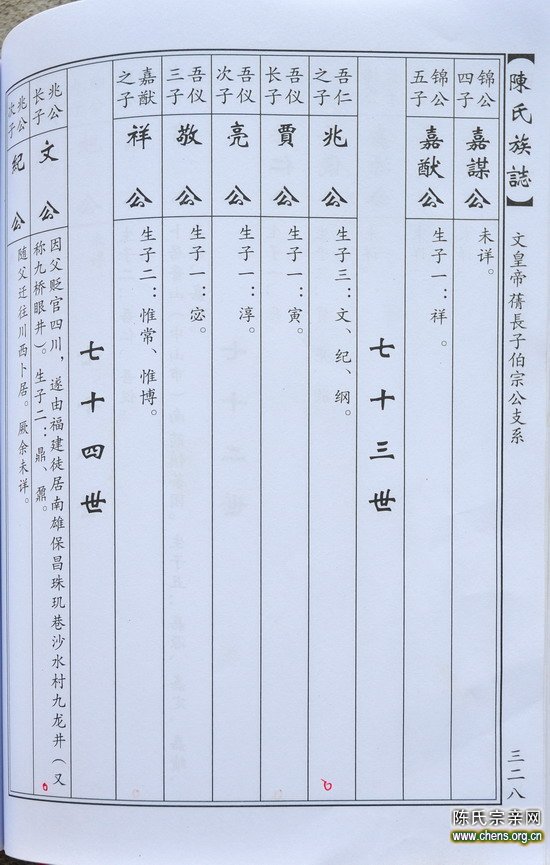 【陳氏族誌】
文皇帝蒨長子伯宗公支系
三二八
锦公四子
嘉謀公
未详。
锦公五子
嘉猷公
生子一：祥。
七十三世
吾仁之子
兆公
生子三：文、纪、纲。
吾仪长子
賈公
生子一：寅。
吾仪次子
亮公
生子一：淳。
吾仪三子
敬公
生子一：宓。
嘉猷之子
祥公
生子二：惟常、惟博。
七十四世
兆公长子
文公
因父贬官四川，遂由福建徒居南雄保昌珠玑巷沙水村九龙井（又
称九桥眼井）。生子二：鼎、鼐。
兆公次子
纪公
随父迁往川西卜居。厥余未详。
陈氏宗亲网
www.chens.org.cn